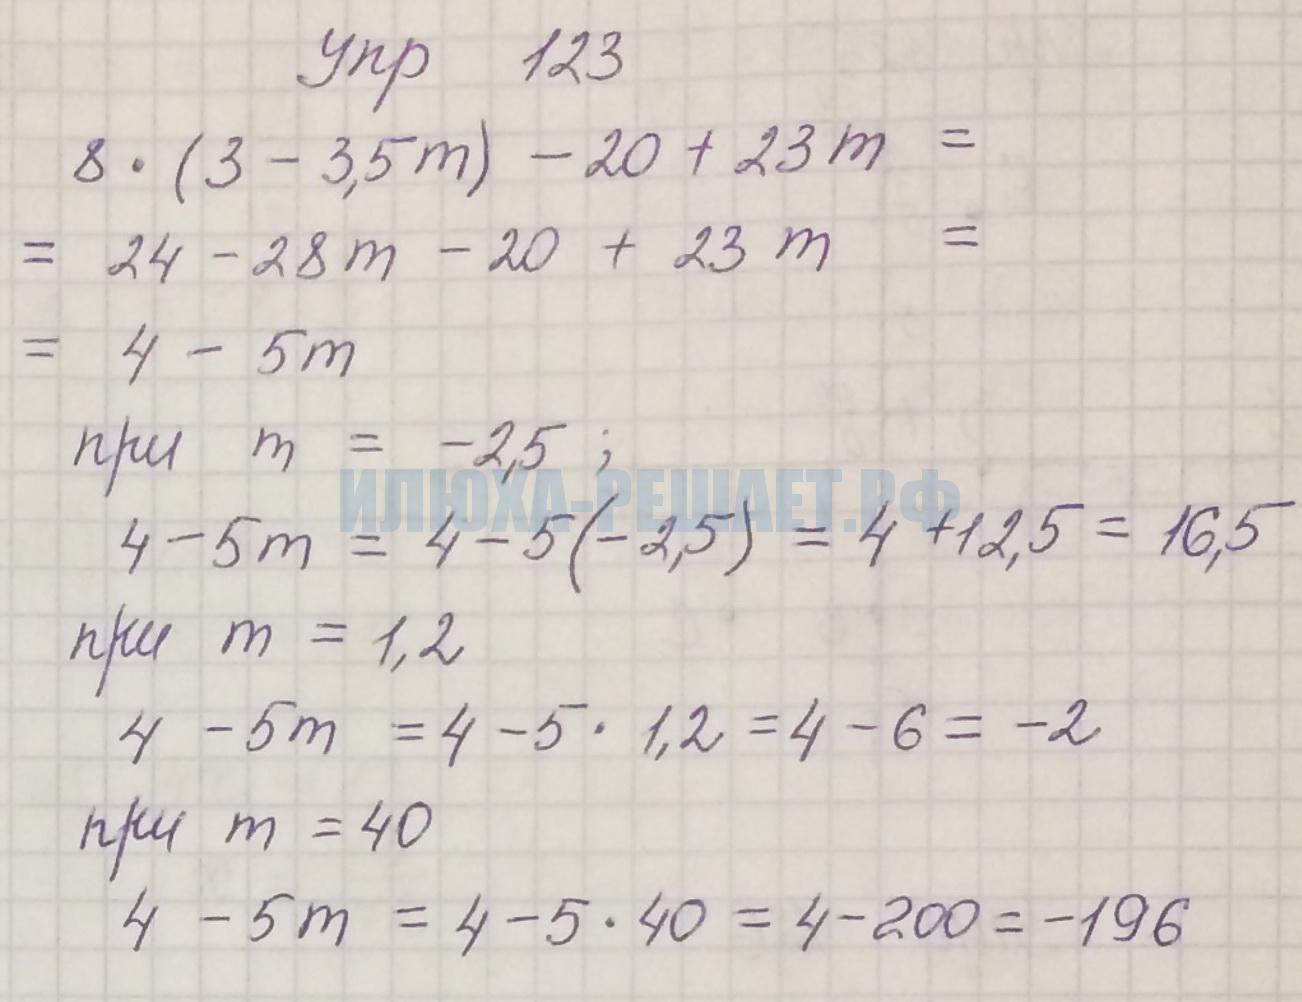 Упр 123
8 · (3 - 3,5m) - 20 + 23m =
= 24 - 28m - 20 + 23m =
= 4 - 5m
при m = -2,5 ;
ИЛЮХА-РЕШАЕТ.РФ
4 - 5m = 4 - 5(-2,5) = 4 + 12,5 = 16,5
при m = 1,2
4 - 5m = 4 - 5 · 1,2 = 4 - 6 = -2
при m = 40
4 - 5m = 4 - 5 · 40 = 4 - 200 = -196